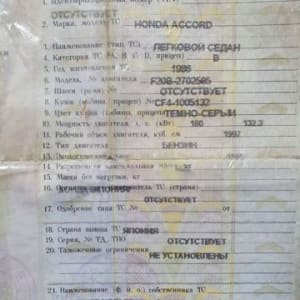 ОТСУТСТВУЕТ
2. Марка, модель ТС HONDA ACCORD
3. Наименование (тип ТС) ЛЕГКОВОЙ СЕДАН
4. Категория ТС B
5. Год изготовления 1998
6. Модель, № двигателя F20B-2702585
7. Шасси (рама) № ОТСУТСТВУЕТ
8. Кузов (кабина, прицеп) № CF4-1005132
9. Цвет кузова (кабины, прицепа) ТЕМНО-СЕРЫЙ
10. Мощность двигателя, л. с. (кВт) 180 132.3
11. Рабочий объем двигателя, куб. см 1997
12. Тип двигателя БЕНЗИН
14. Разрешенная максимальная масса, кг
15. Масса без нагрузки, кг
16. ТС (страна)
ЯПОНИЯ
ОТСУТСТВУЕТ
17. Одобрение типа ТС №
18. Страна вывоза ТС ЯПОНИЯ
19. Серия, № ТД, ТПО ОТСУТСТВУЕТ
20. Таможенные ограничения НЕ УСТАНОВЛЕНЫ
21. Наименование (ф. и. о.) собственника ТС